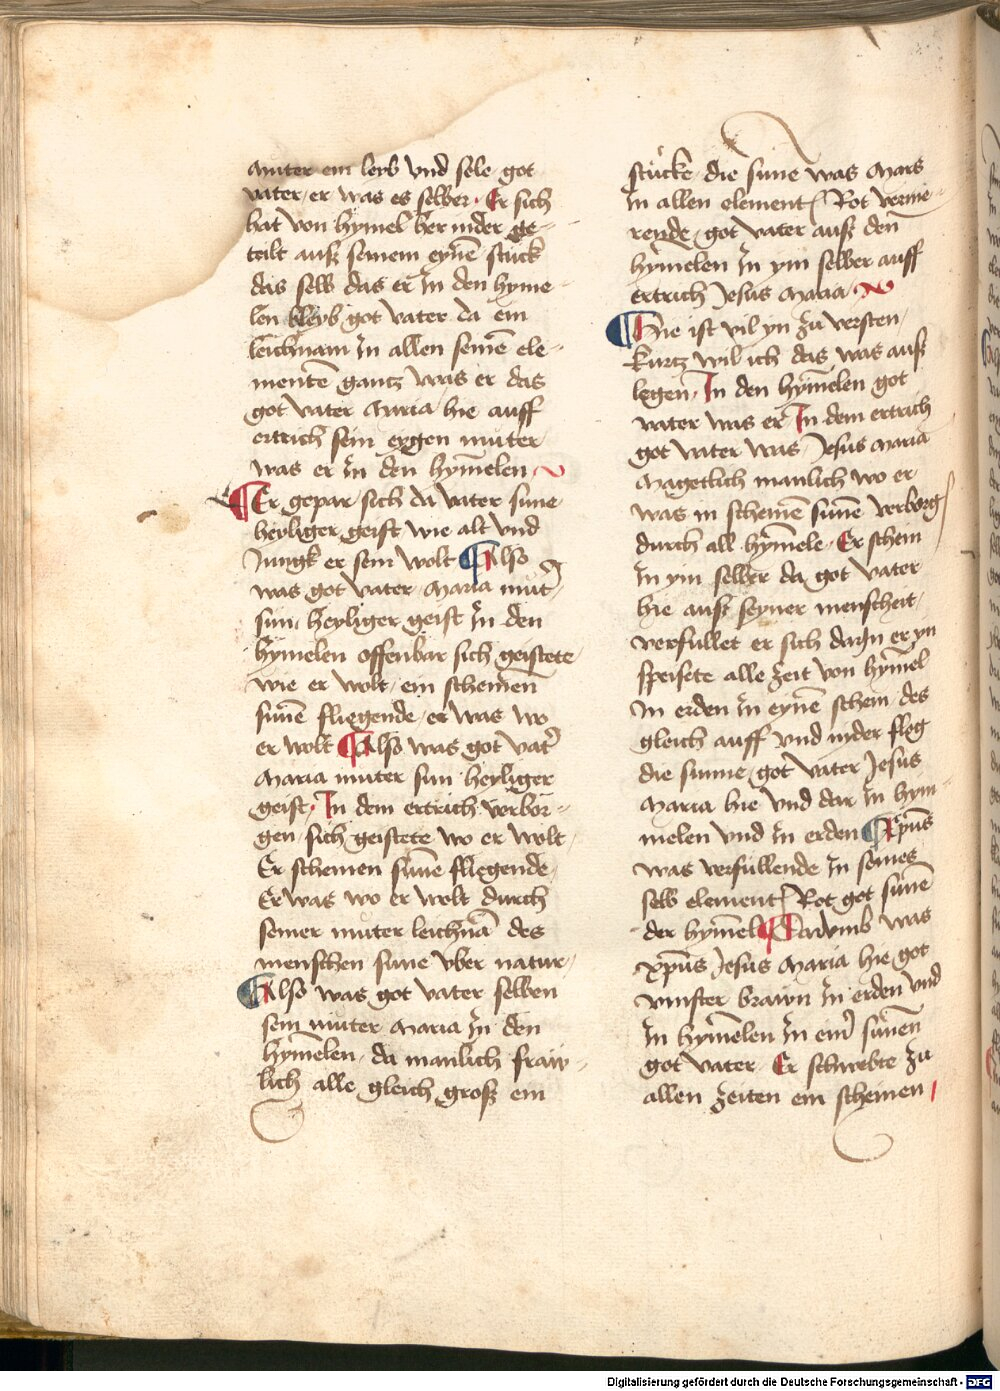 muter ein leyb vnd sele got
vater / er was es selber · Er sich
hat von hymel her nider ge-
teilt auß seinem eyne̅ stuck
das selb das er in den hyme-
len bleyb got vater da ein
leichnam in allen seine̅ ele-
mente̅ gantz was er das
got vater maria hie auff
ertrich sein eygen muter
was er in den hyme̅len
¶ Er gepar sich da vater sune
heyliger geist wie alt vnd
Jungk er sein wolt ¶ Also
was got vater maria mut̓
sun heyliger geist in den
hymelen offenbar sich geistete
wie er wolt / ein scheinen
sune̅ fliegende / er was wo
er wolt ¶ Also was got vat̓
maria muter sun heyliger
geist · In dem ertrich verbor-
gen sich geistete wo er wolt
Er scheinen sune̅ fliegende
Er was wo er wolt durch
seiner muter leichna̅ des
menschen sune vber natur
¶ Also was got vater selben
sein muter maria in den
hyme̅len / da manlich fraw-
lich alle gleich groß ein
stücke / die sune was mars
in allen element Rot verme-
rende got vater auß den
hymelen in ym selber auff
ertrich Jesus maria
¶ Hie ist vil yn zu versten
kurtz wil ich das was auß
legen · In den hyme̅len got
vater was er In dem ertrich
got vater was Jesus maria
magetlich manlich wo er
was in scheine̅ sune̅ verborg
durch all hyme̅le · Er schein
in ym selber da got vater
hie auß seyner menscheit
verfullet er sich dar In er yn
speisete alle zeit von hyme̅l
in erden in eyne̅ schein des
gleich auff vnd nider flog
die sunne got vater Jesus
maria hie vnd dar in hym-
melen vnd in erden ¶ xpūs
was verfullende in seines
selb element Rot got sune̅
der hyme̅l ¶ Darvmb was
xpūs Jesus maria hie got
vinster brawn in erden vnd
in hyme̅len in ein̓ sunen
got vater · Er schwebte zu
allen zeiten ein scheinen
Digitalisierung gefördert durch die Deutsche Forschungsgemeinschaft - DFG